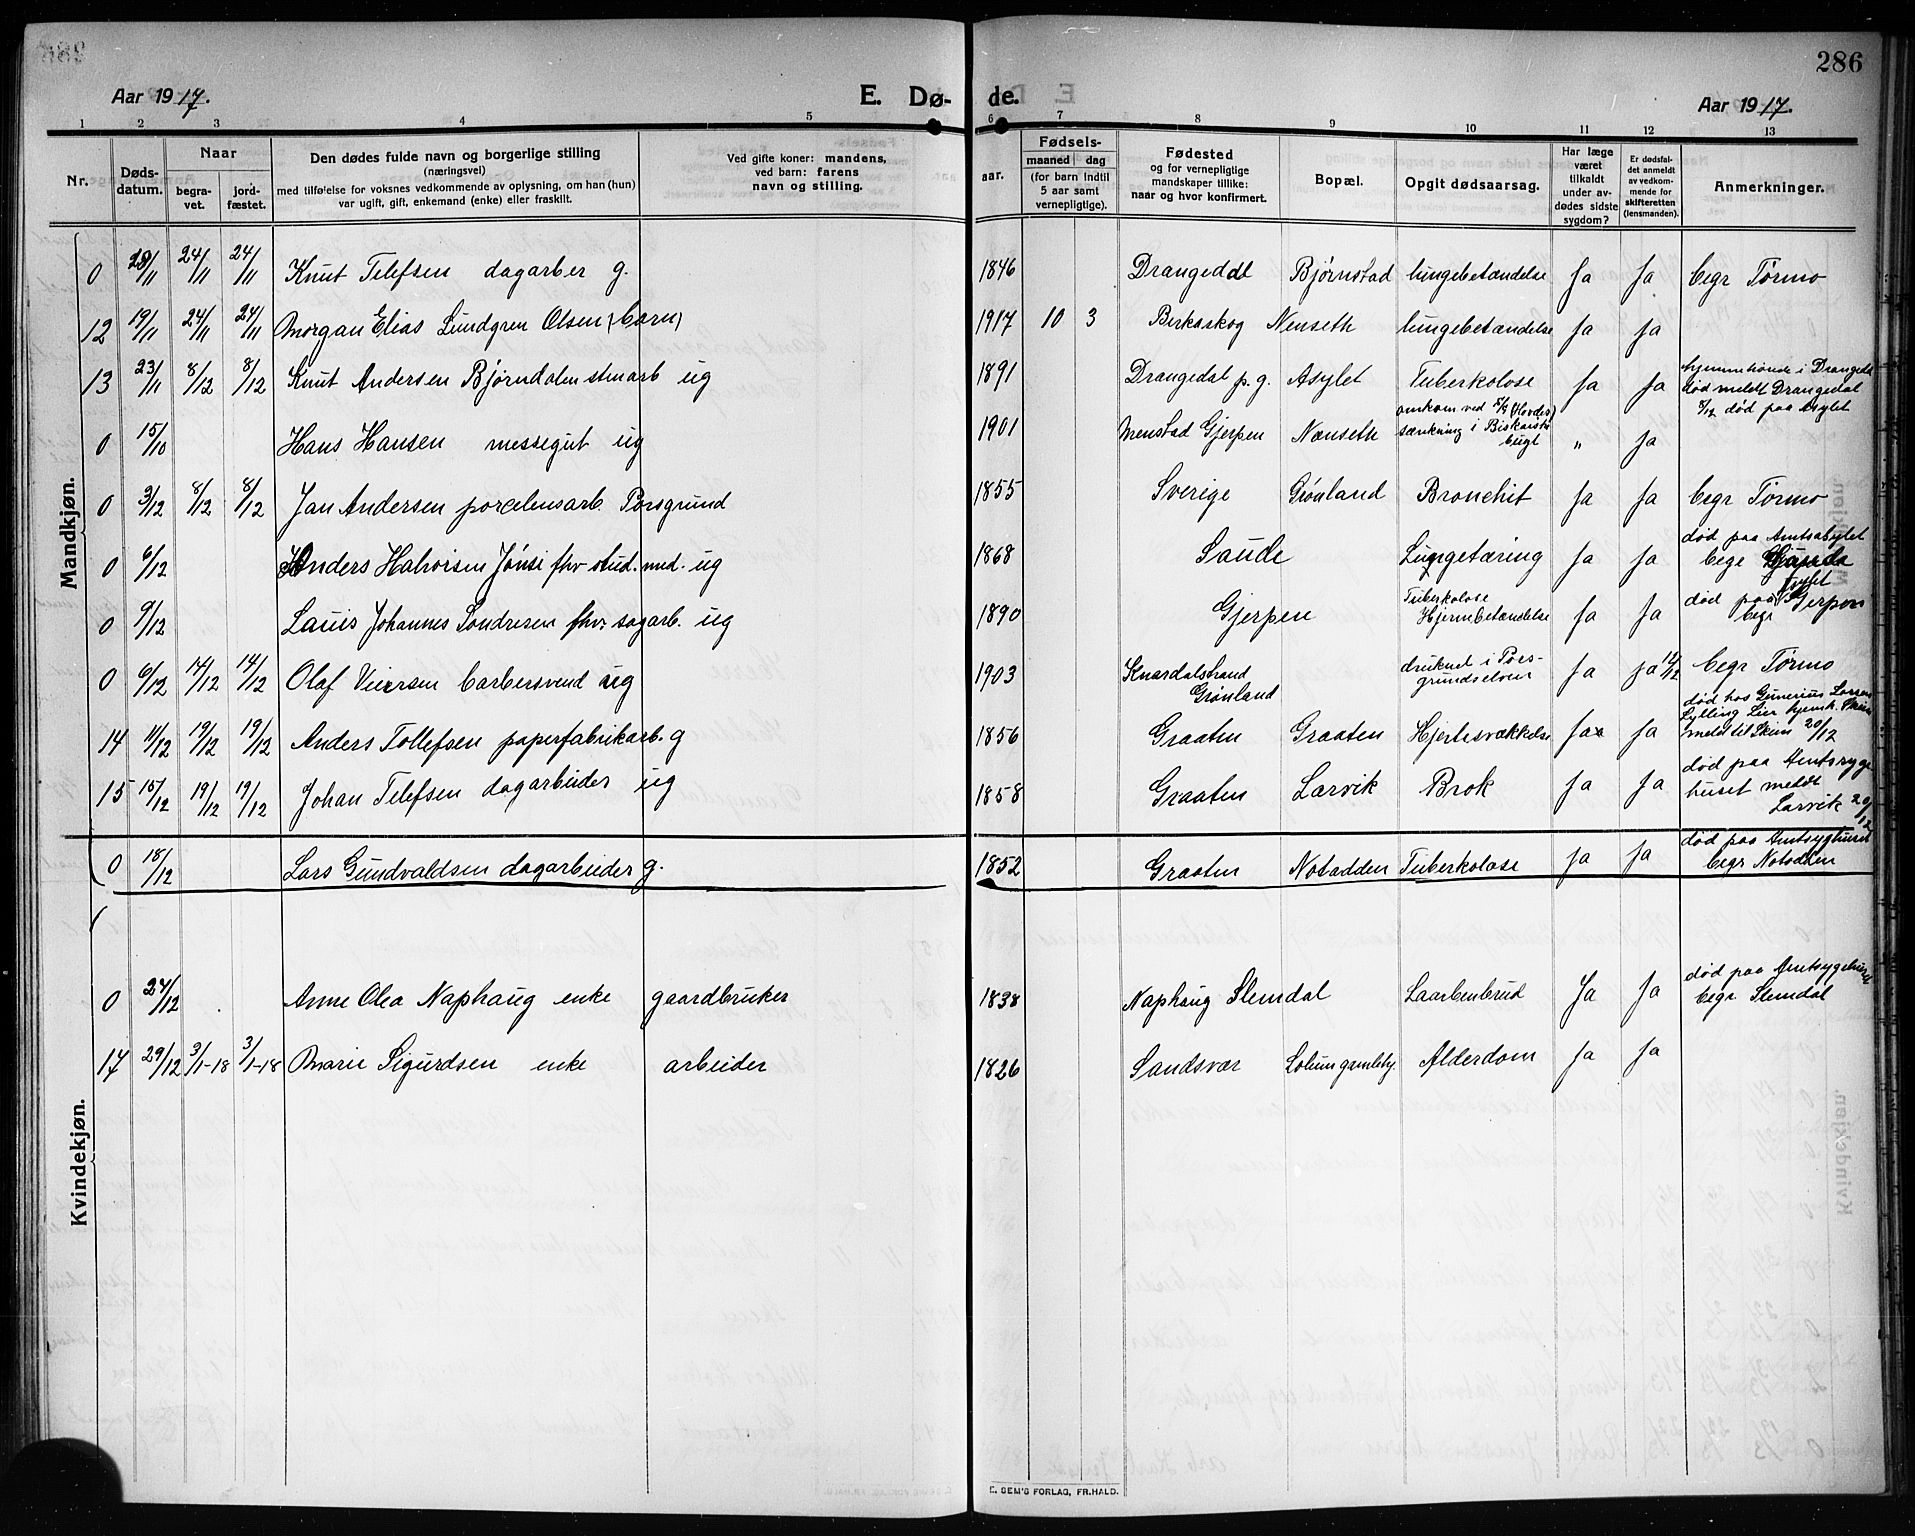 286
Aar 1917.
E. Dø-
de.
Aar 1917.
1 2 3 4 5 6 7 8 9 10 11 12 13
Nr.
Døds-
datum.
Naar
begra-
vet.
jord-
fæstet.
Den dødes fulde navn og borgerlige stilling
(næringsvei)
med tilføielse for voksnes vedkommende av oplysning, om han (hun)
var ugift, gift, enkemand (enke) eller fraskilt.
Ved gifte koner: mandens,
ved barn: farens
navn og stilling.
aar.
Fødsels-
maaned dag
(for barn indtil
5 aar samt
vernepligtige).
Fødested
og for vernepligtige
mandskaper tillike:
naar og hvor konfirmert.
Bopæl.
Opgit dødsaarsag.
Har læge
været
tilkaldt
under av-
dødes sidste
sygdom?
Er dødsfal-
det anmeldt
av vedkom-
mende for
skifteretten
(lensmanden).
Anmerkninger.
Mandkjøn.
0 /11 24/11 24/11 Knut Telefsen dagarber g. 1846 Drangedal Bjørnstad lungebetændelse Ja Ja begr Tørmo
12 19/11 24/11 24/11 Morgan Elias Lundgren Olsen (barn) 1917 10 3 Birkaskog Nenseth lungebetændelse Ja Ja
13 23/11 8/12 8/12 Knut Andersen Bjørndalen stenarb ug 1891 Drangedal p. g. Asylet Tuberkolose Ja Ja hjemmehørende i Drangedal
død meldt Drangedal
8/12 død paa Asylet
0 15/10 Hans Hansen messegut ug 1901 Menstad Gjerpen Nænseth omkom ved
sænkning i Biskaiske
bugt " Ja
0 3/12 8/12 8/12 Jan Andersen porcelensarb. Porsgrund 1855 Sverige Grønland Bronchit Ja Ja begr Tørmo
0 6/12 Anders Halvorsen Jónsi fhv stud. med. ug 1868 Saude Lungetæring Ja Ja død paa Amtsasylet
begr
0 9/12 Lauis Johannes Sondresen fhv. sagarb. ug 1890 Gjerpen Tuberkolose
Hjernebetændelse Ja Ja død paa Asylet
begr Gerpen
0 6/12 14/12 14/12 Olaf Veiersen barbersvend ug 1903 Knardalstrand
Grønland druknet i Pors-
grundselven Ja ja 12/12 begr Tørmo
14 11/12 19/12 19/12 Anders Tollefsen papirfabrikarb. g 1856 Graaten Graaten Hjertesvækkelse Ja Ja død hos Gunerius Larsen
Lylling Lier hjemh. Skien
meldt til Skien 20/12
15 15/12 19/12 19/12 Johan Telefsen dagarbeider ug 1858 Graaten Larvik Brok Ja Ja død paa Amtssyge
huset meldt
Larvik 20/12
0 18/12 Lars Gundvaldsen dagarbeider g. 1852 Graaten Notodden Tuberkolose Ja Ja død paa Amtsyghuset
begr Notodden
Kvindekjøn.
0 24/12 Anne Olea Naphaug enke gaardbruker 1838 Naphaug Slemdal Laarbenbrud Ja Ja død paa Amtsygehuset
begr. Slemdal
17 29/12 3/1-18 3/1-18 Marie Sigurdsen enke arbeider 1826 Sandsvær Solum gamlehj. Alderdom Ja Ja
E. SEM'S FORLAG, FR.HALD.